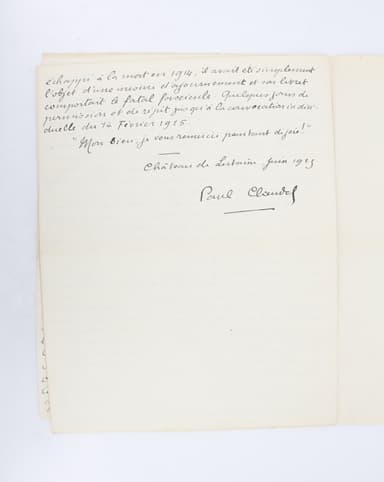 échappé à la mort en 1914, il avait été simplement
l'objet d'une mesure d'ajournement et son livret
comportait le fatal fascicule. Quelques jours de
permission et de répit jusqu'à la convocation indivi-
duelle du 14 Février 1915.
"Mon Dieu, je vous remercie pour tant de joie!"
Château de Juin 1925
Paul Claudel